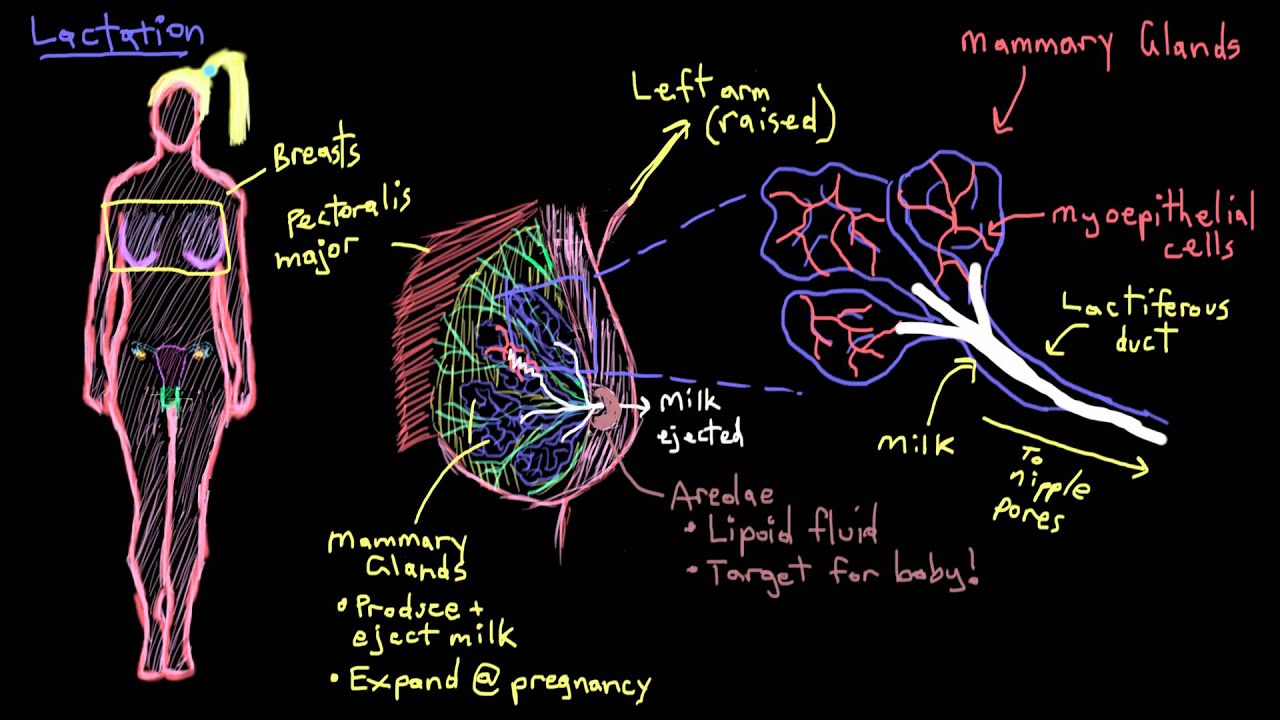 Lactation
Breasts
Pectoralis
major
Left arm
(raised)
Milk
ejected
Areolae
• Lipoid fluid
• Target for baby!
Mammary
Glands
• Produce +
eject milk
• Expand @ pregnancy
Mammary Glands
myoepithelial
cells
Lactiferous
duct
Milk
To
nipple
pores